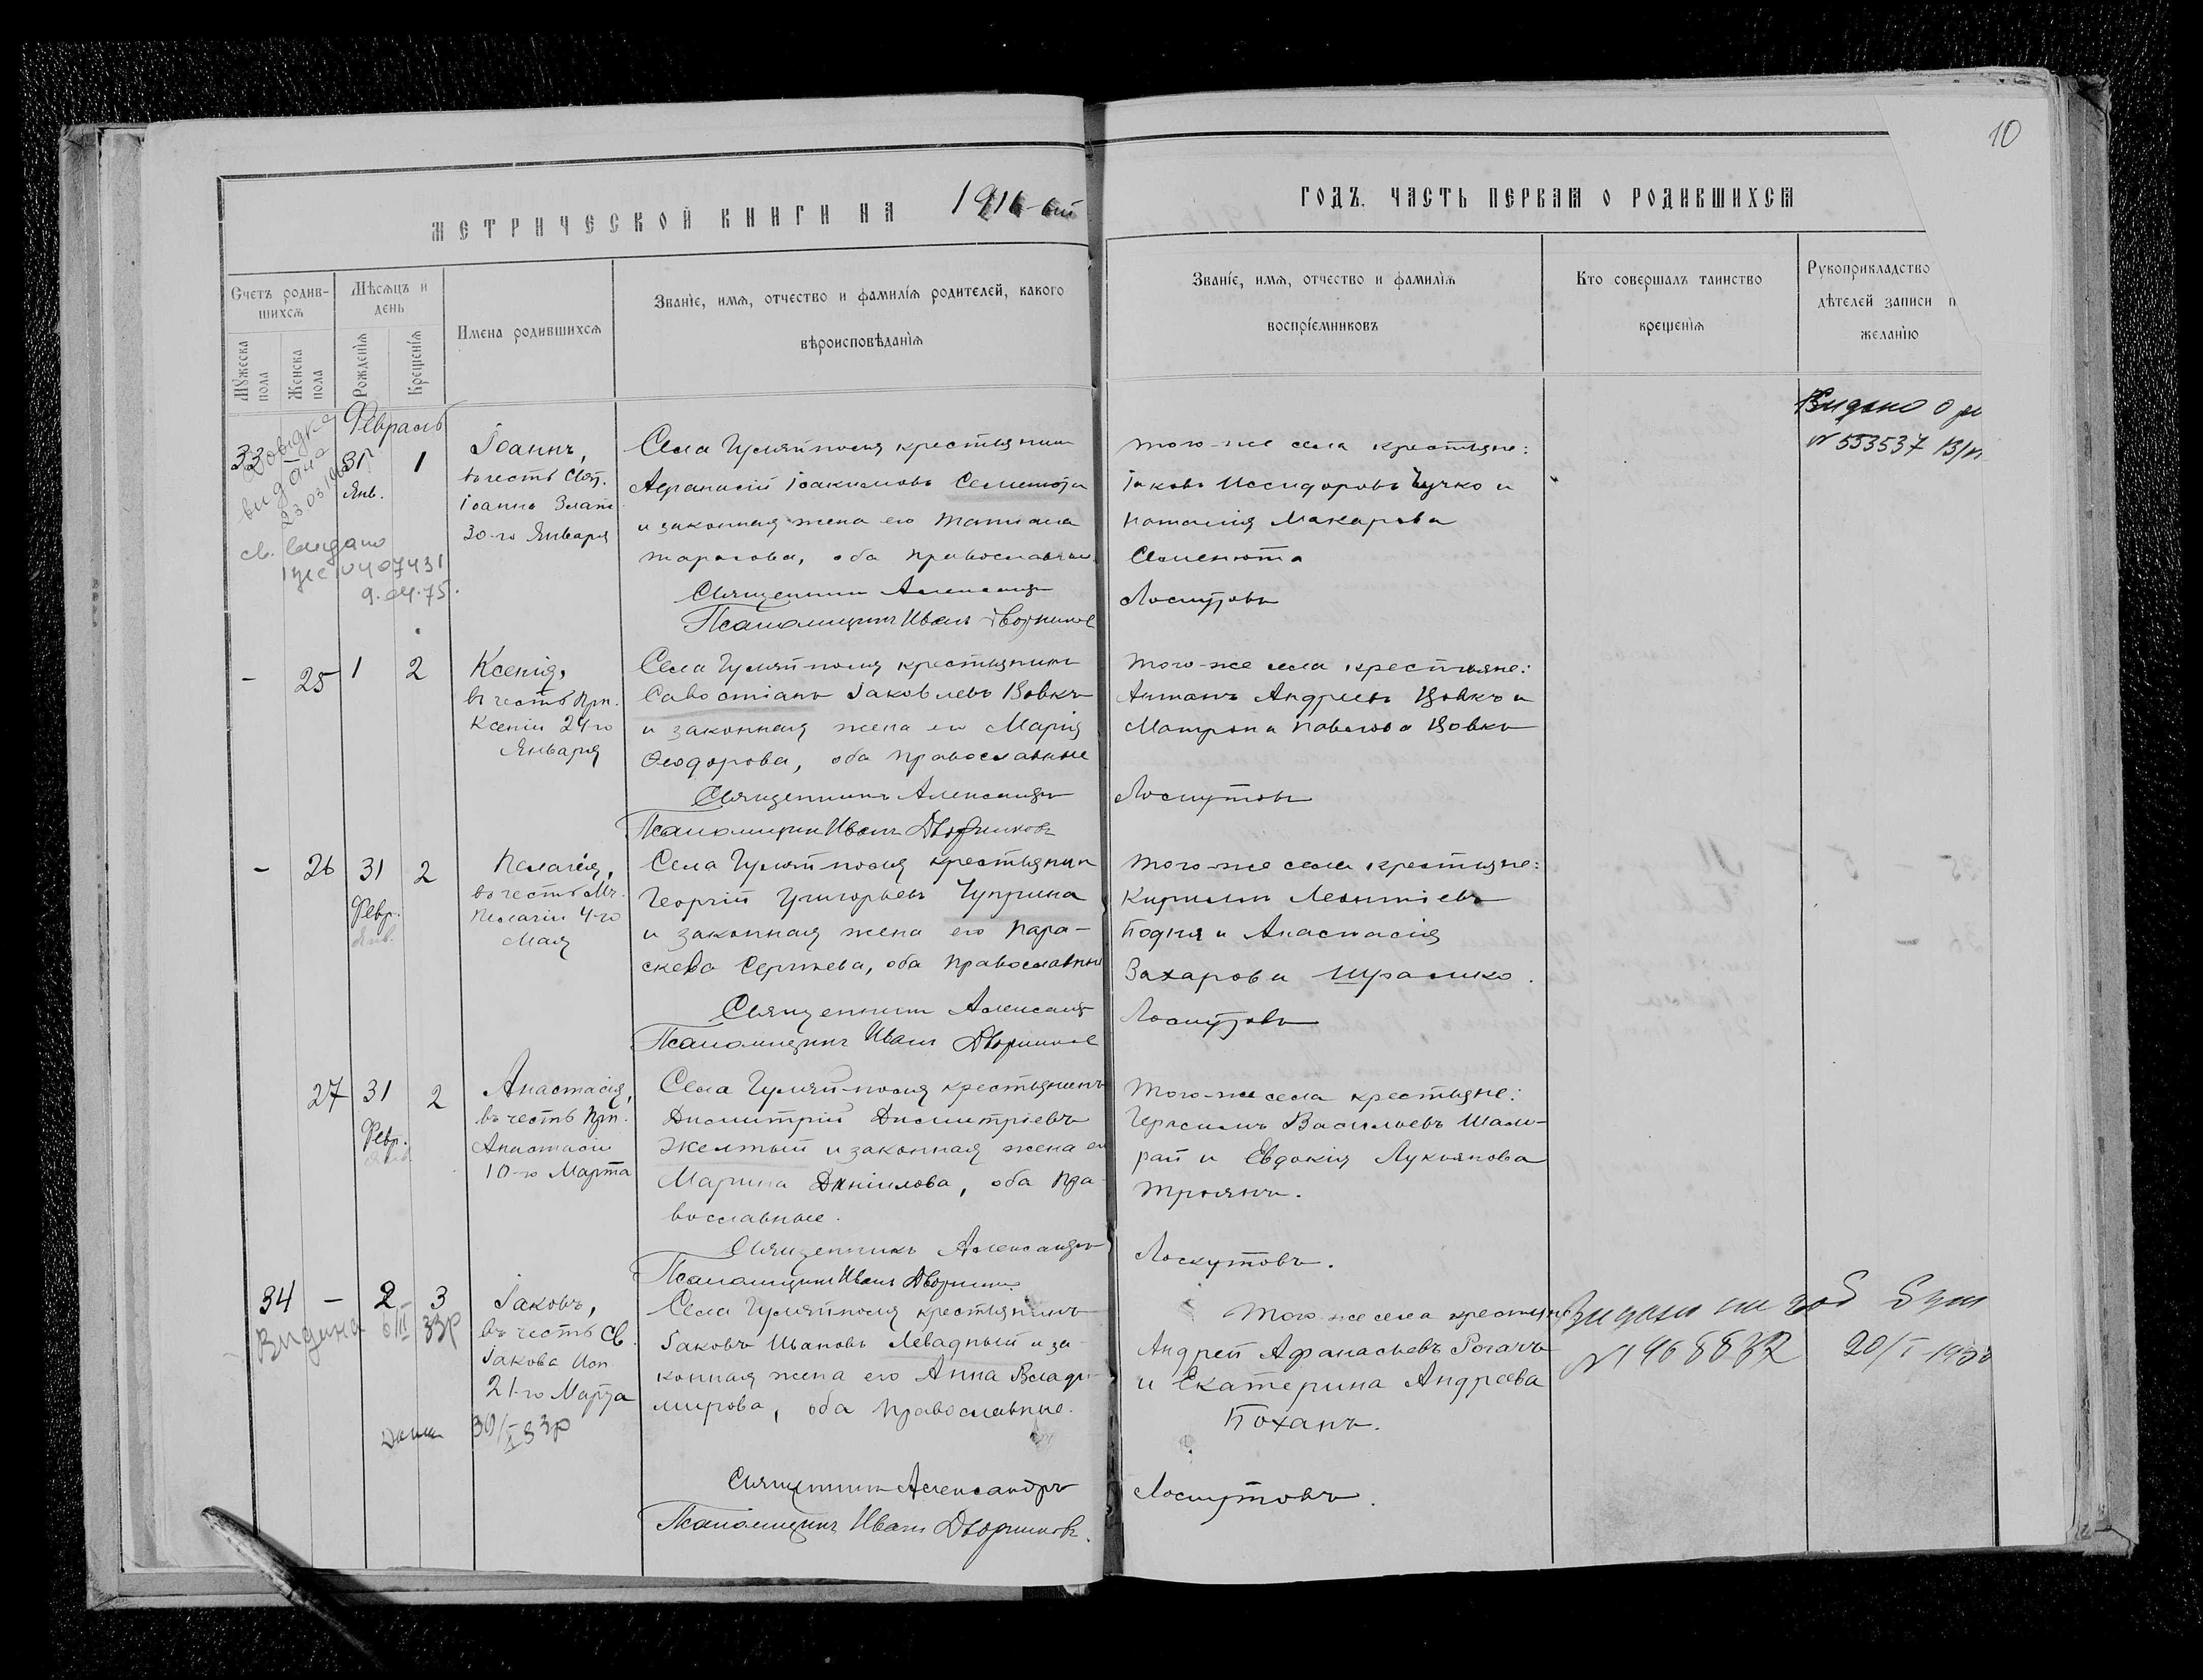 10
МЕТРИЧЕСКОЙ КНИГИ НА 1916-ый
ГОДЪ. ЧАСТЬ ПЕРВАЯ О РОДИВШИХСЯ
Счетъ родив-
шихся
Мужеска пола
Женска пола
Мѣсяцъ и
день
Рожденія
Крещенія
Имена родившихся
Званіе, имя, отчество и фамилія родителей, какого
вѣроисповѣданія
Званіе, имя, отчество и фамилія
воспріемниковъ
Кто совершалъ таинство
крещенія
Рукоприкладство
дѣтелей записи п
желанію
Февраль
33
Довідка
видана
23 03
св. видано
0407431
9.04.75.
31
Янв.
1
Іоаннъ,
въ честь Свят.
Іоанна Злат.
30-го Января
Села Гуляйполя крестьянин
Афанасій Іоакимовъ Семенюта
и законная жена его Татиана
Тарасова, оба православные.
Священник Александръ
Псаломщикъ Иванъ Дворников
того-же села крестьяне:
Іаковъ Исидоровъ Чучко и
Наталія Макарова
Семенюта
Лоскутовъ
Видано
N 553537
- 25 1 2
Ксенія,
въ честь Прп.
Ксеніи 24-го
Января
Села Гуляй-поля крестьянинъ
Савостіанъ Іаковлевъ Вовкъ
и законная жена его Марія
Ѳеодорова, оба православные
Священникъ Александръ
Псаломщикъ Иванъ Дворниковъ
того-же села крестьяне:
Антонъ Андреевъ Вовкъ и
Матрона Павлова Вовкъ
Лоскутовъ
- 26 31 2
Февр.
Янв.
Пелагія,
въ честь Мч.
Пелагіи 4-го
Мая
Села Гуляй-поля крестьянин
Георгій Григорьевъ Чуприна
и законная жена его Пара-
скева Сергѣева, оба православные
Священник Александръ
Псаломщикъ Иванъ Дворников
того-же села крестьяне:
Кириллъ Леонтіевъ
Бодня и Анастасія
Захарова Шрамко.
Лоскутовъ
27 31 2
Февр.
Анастасія,
въ честь Прп.
Анастасіи
10-го Марта
Села Гуляй-поля крестьянинъ
Димитрій Димитріевъ
Желтый и законная жена его
Марина Даніилова, оба пра-
вославные.
Священникъ Александръ
Псаломщикъ Иванъ Дворников
Того-же села крестьяне:
Герасимъ Васильевъ Шам-
рай и Евдокія Лукьянова
Троянъ.
Лоскутовъ.
34 - 2 3
Видана 6/III 33р
Іаковъ,
въ честь Св.
Іакова Исп.
21-го Марта
30/X 33р
Села Гуляйполя крестьянинъ
Іаковъ Ивановъ Левадный и за-
конная жена его Анна Влади-
мирова, оба православные.
Священник Александръ
Псаломщикъ Иванъ Дворниковъ.
Того-же села крестьяне
Андрей Афанасьевъ Рогачъ
и Екатерина Андреева
Боханъ.
Лоскутовъ.
N 1968832 20/I-1950